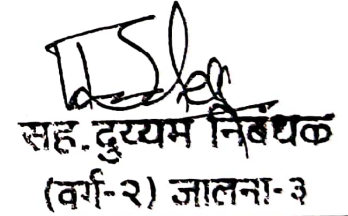 सह. दुय्यम निबंधक
(वर्ग-२) जालना-३